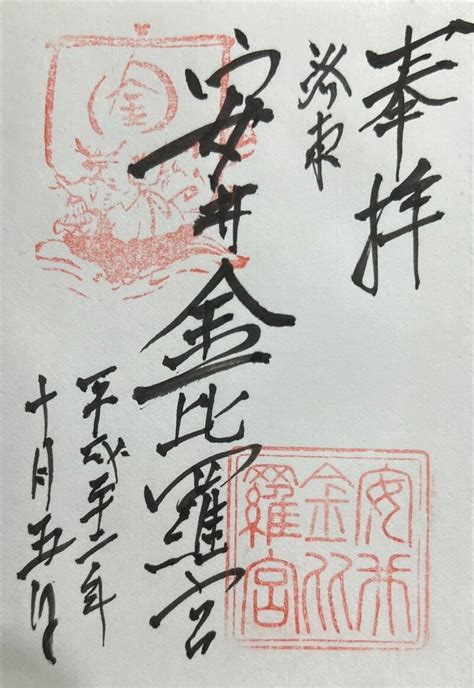 奉拝
洛東
安井金比羅宮
平成二十二年
十月五日
金
安井金比羅宮